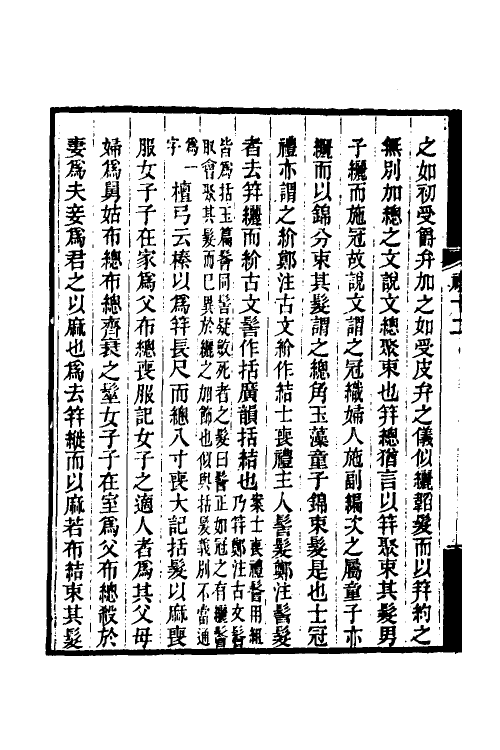 之如初受爵弁加之如受皮弁之儀似纚韜髮而以笄約之
無別加總之文說文總聚束也笄總猶言以笄聚束其髮男
子纚而施冠故說文謂之冠織婦人施副編次之屬童子亦
纚而以錦分束其髮謂之總角玉藻童子錦束髮是也士冠
禮亦謂之紒鄭注古文紒作結士喪禮主人髻髮鄭注髻髮
者去笄纚而紒古文髻作括廣韻括結也
案士喪禮鬠用組乃笄鄭注古文鬠
皆爲括玉篇鬠同髻疑斂死者之髮曰鬠正如冠之有纚鬠
取會聚其髮而已異於纚之加飾也似與括髮義別不當通
爲一字
檀弓云榛以爲笄長尺而總八寸喪大記括髮以麻喪
服女子子在家爲父布總喪服記女子之適人者爲其父母
婦爲舅姑布總布總齊衰之髽女子子在室爲父布總殺於
妻爲夫妾爲君之以麻也爲去笄縰而以麻若布結束其髮
禮十二